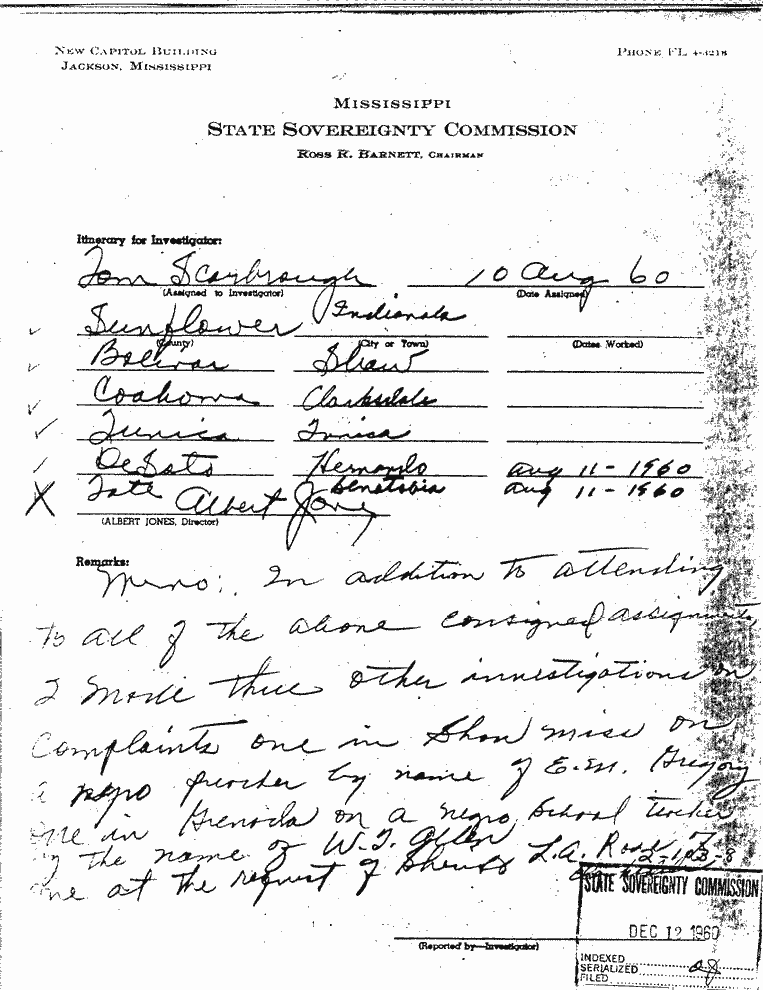 NEW CAPITOL BUILDING
JACKSON, MISSISSIPPI
PHONE FL 4-3218
MISSISSIPPI
STATE SOVEREIGNTY COMMISSION
ROSS R. BARNETT, CHAIRMAN
Itinerary for Investigator:
Tom Scarbrough 10 Aug 60
(Assigned to Investigator) (Date Assigned)
Sunflower Indianola
(County) (City or Town) (Dates Worked)
Bolivar Shaw
Coahoma Clarksdale
Tunica Tunica
DeSoto Hernando Aug 11-1960
Tate Senatobia Aug 11-1960
Albert Jones
(ALBERT JONES, Director)
Remarks:
Memo: In addition to attending
to all of the above consigned assignments,
I made three other investigations on
Complaints one in Shaw Miss on
a negro preacher by name of E.M. Gregory
one in Grenada on a negro School teacher
by the name of W.T. Allen
one at the request of Sheriff L.A. Ross
STATE SOVEREIGNTY COMMISSION
DEC 12 1960
INDEXED
SERIALIZED
FILED
(Reported by—Investigator)